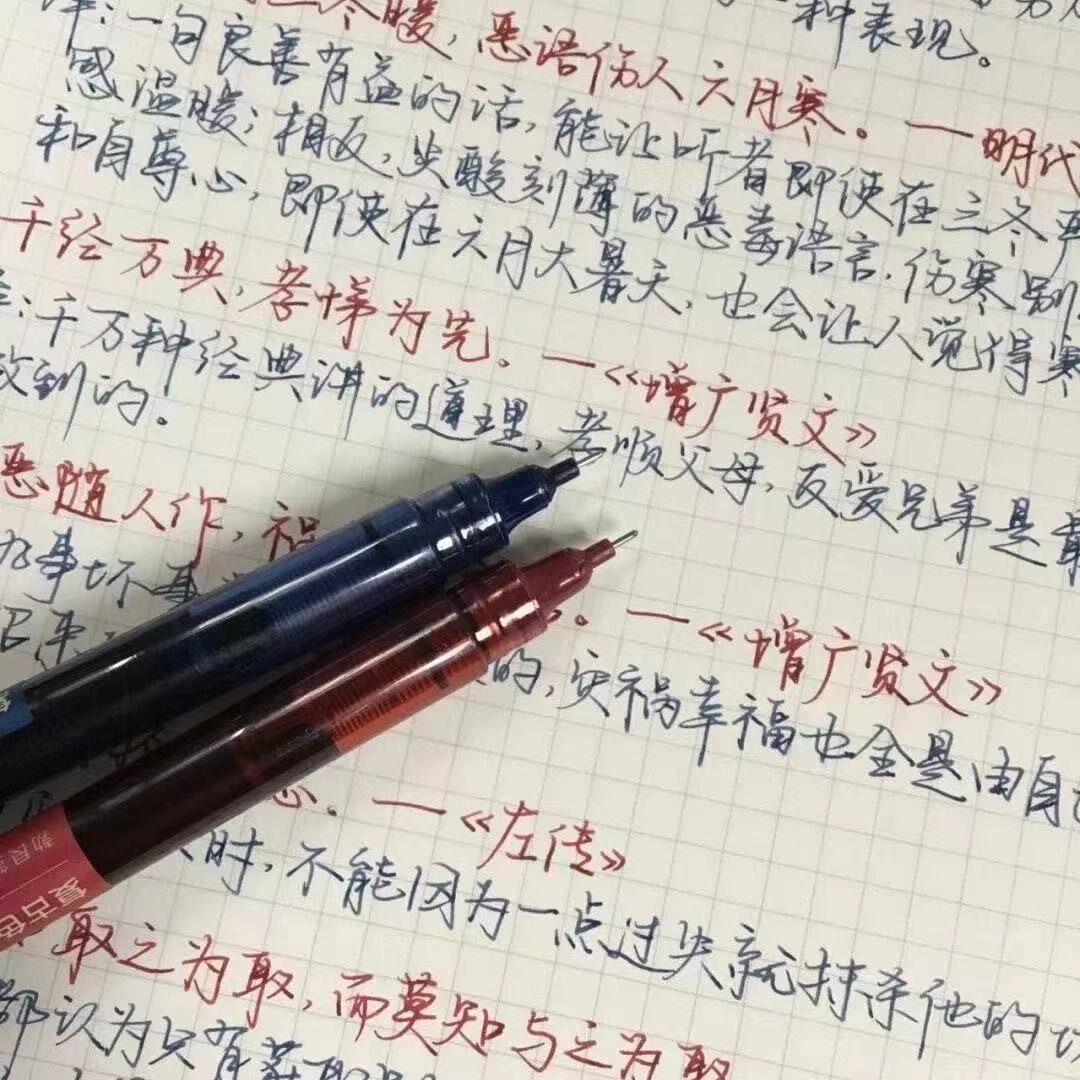 种表现。
三冬暖，恶语伤人六月寒。—明代
一句良善有益的话，能让听者即使在三冬严
感温暖；相反，尖酸刻薄的恶毒语言，伤寒别
和自尊心，即使在六月大暑天，也会让人觉得寒
千经万典，孝悌为先。—《增广贤文》
：千万种经典讲的道理，孝顺父母，友爱兄弟是最
做到的。
恶随人作，祸
。—《增广贤文》
坏事
的，灾祸幸福也全是由自
。—《左传》
时，不能因为一点过失就抹杀他的
取之为取，而莫知与之为取
都认为只有获取
复古色